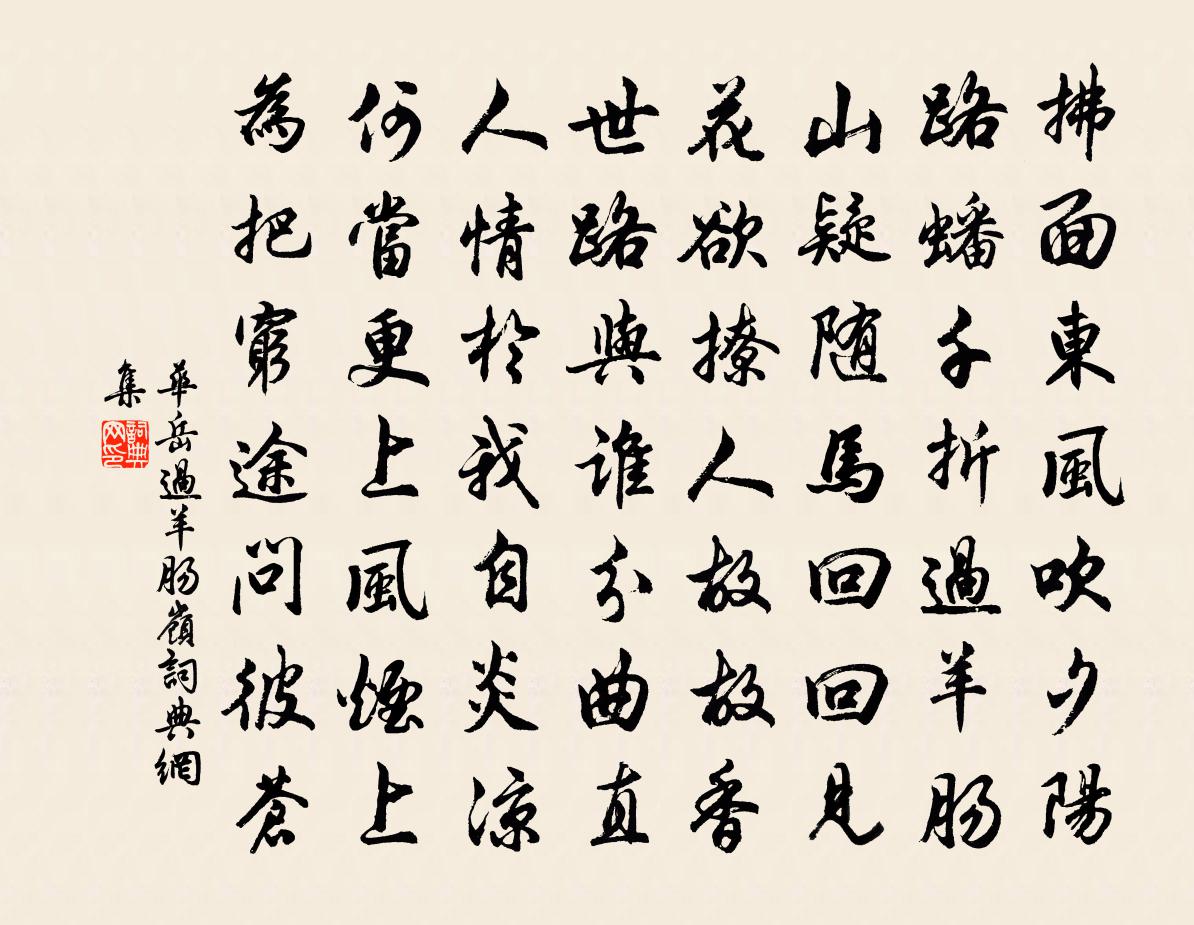 拂面東風吹夕陽
路蟠千折過羊腸
山疑随馬回回見
花欲撩人故故香
世路與誰分曲直
人情於我自炎涼
何當更上風煙上
為把窮途問彼蒼
華岳過羊腸嶺詞典網
集
詞典
网印